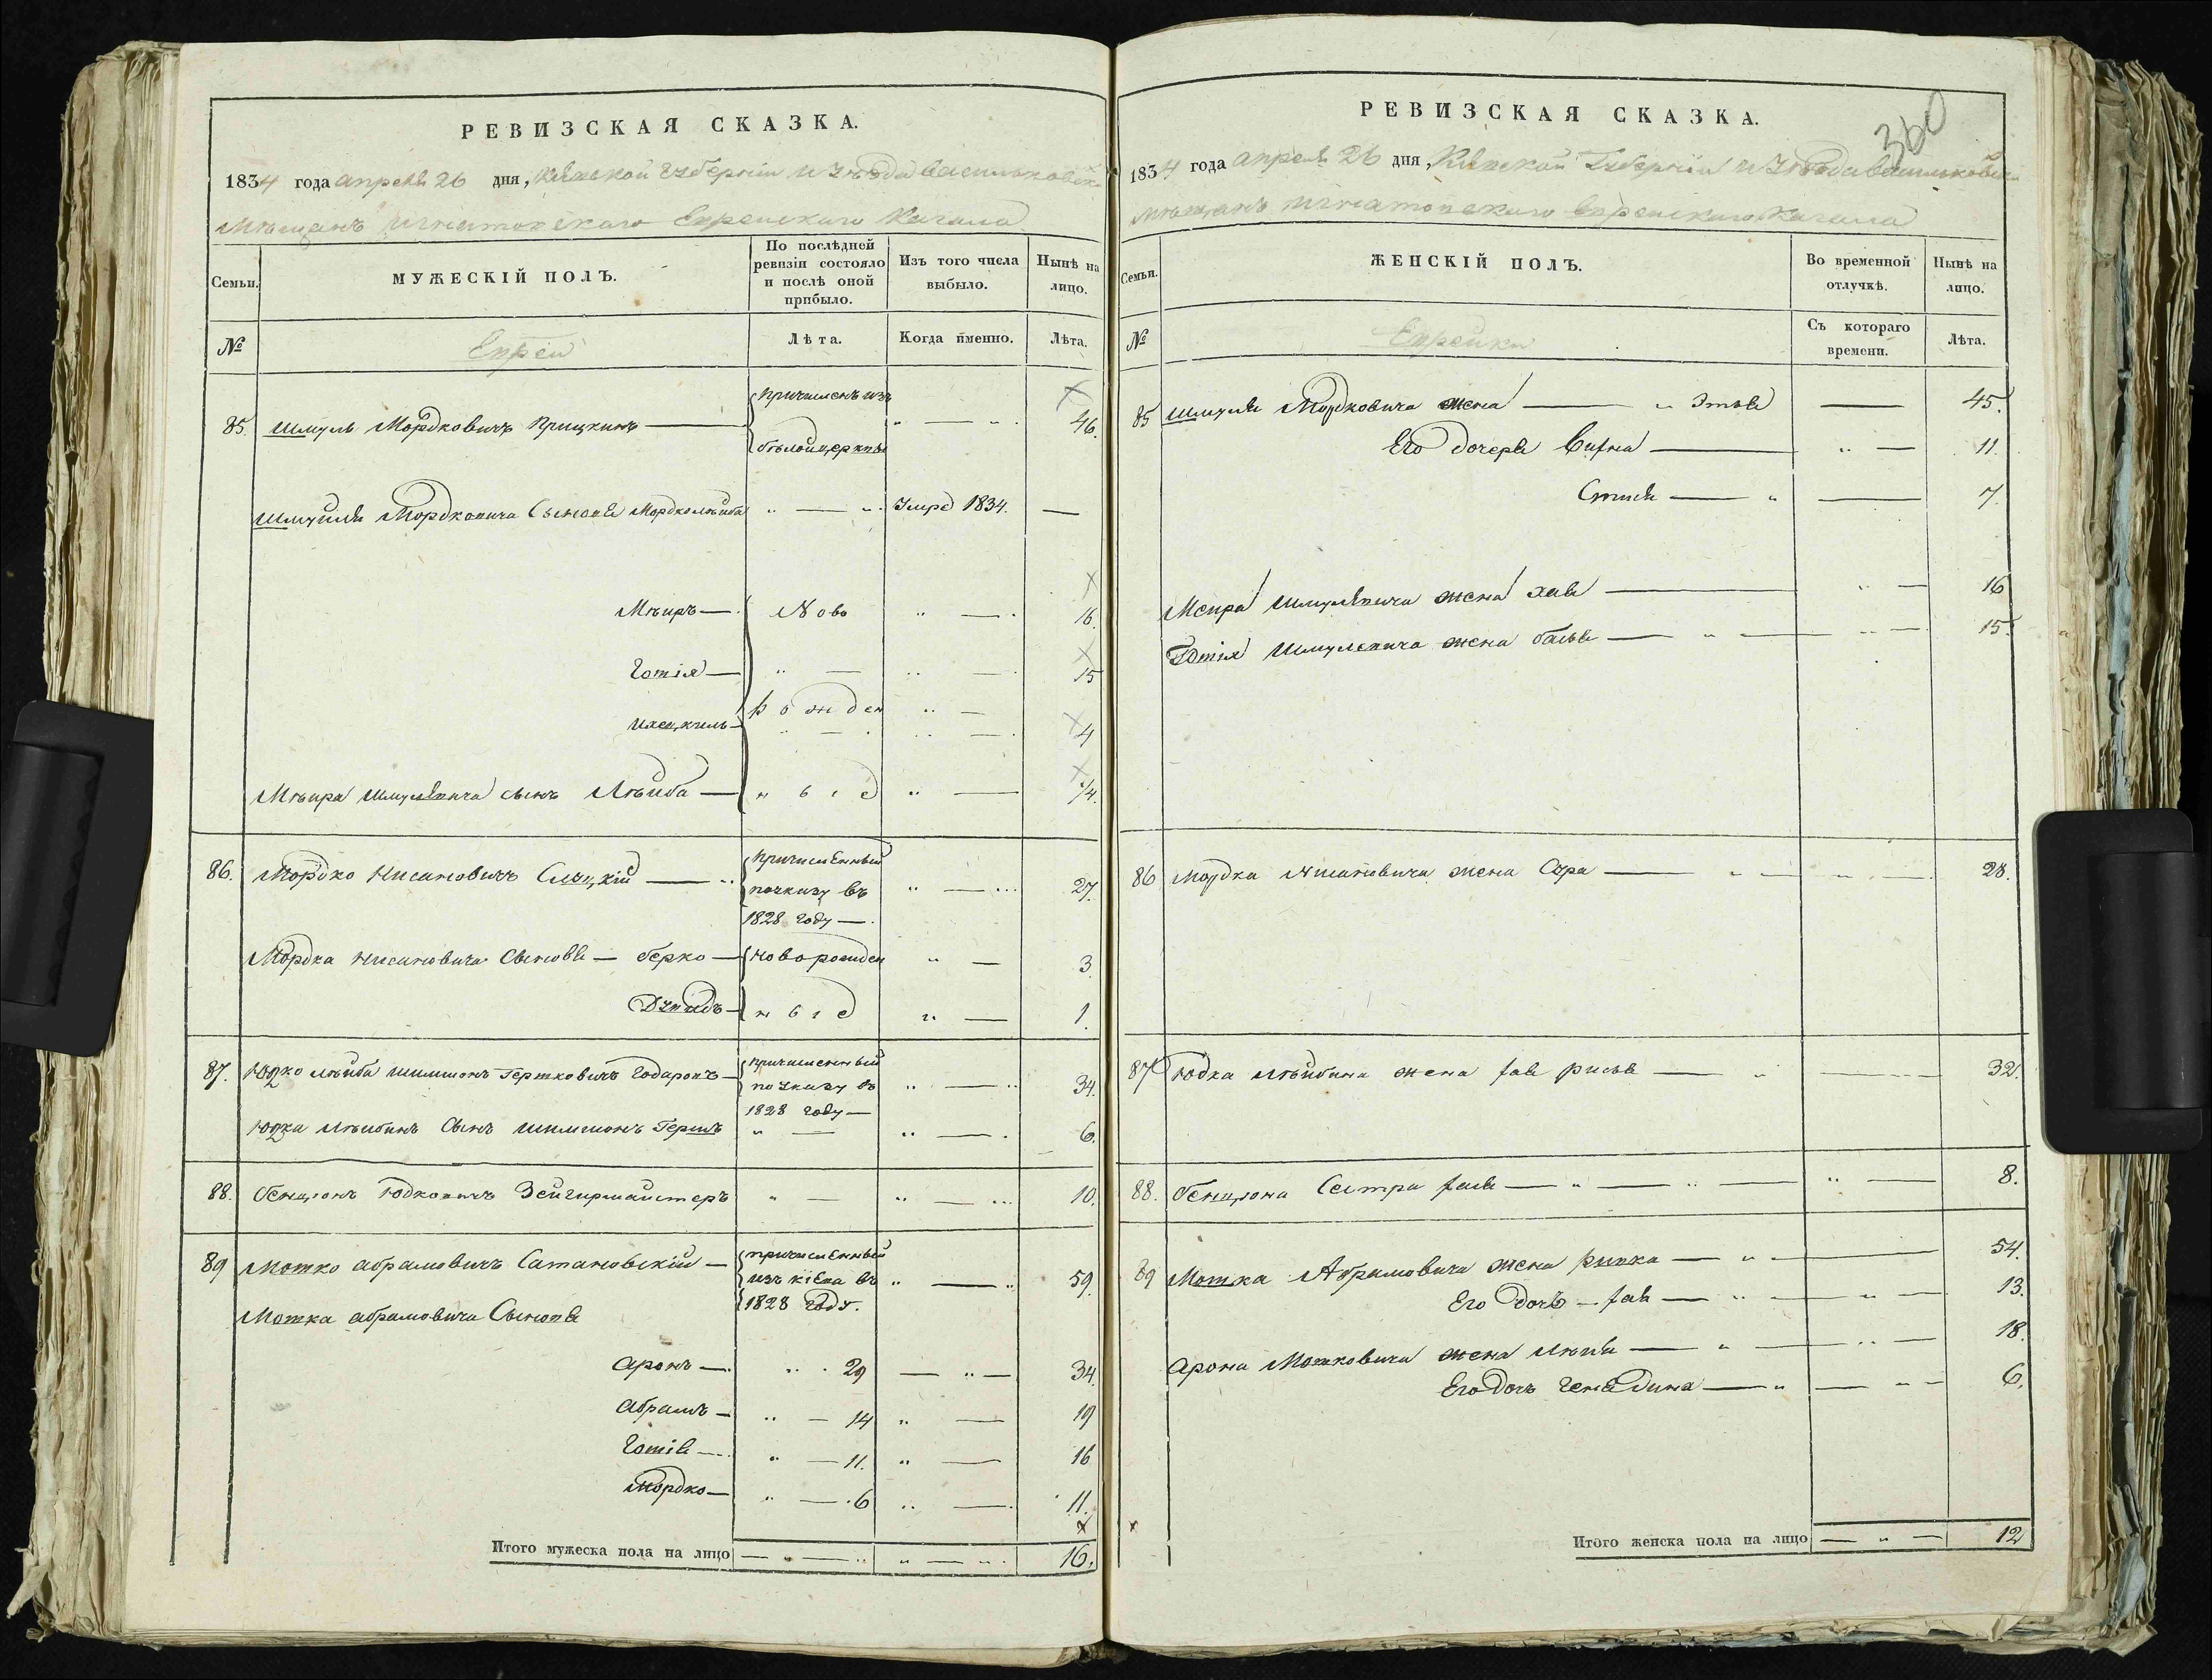 РЕВИЗСКАЯ СКАЗКА.
1834 года апреля 26 дня, Кіевской губерніи и уѣзда Васильковск
мѣщанъ Игнатовскаго Еврейскаго Кагала
Семьи. МУЖЕСКІЙ ПОЛЪ. По послѣдней ревизіи состояло и послѣ оной прибыло. Изъ того числа выбыло. Нынѣ на лицо.
№ Евреи Лѣта. Когда именно. Лѣта.
85. Шмуль Мордковичъ причисленъ изъ бѣлойцеркви 46.
Шмуля Мордковича Сыновья Мордколейба Умре 1834. —
Мѣиръ — Ново 16.
Готія — 15
Ихецкиль — рожден 4
Мѣира Шмулевича сынъ Лѣиба — ныіе 1/4.
86. Мордко Нисановичъ Слуцкій — причисленный поуказу въ 1828 году — 27.
Мордка Нисановича Сыновья — берко — новорожден 3.
Давидъ — ныіе 1.
87. Юдко лѣиба шимшонъ Гершковичъ — причисленный по указу въ 1828 году — 34.
Юдка Лѣибинъ Сынъ шимшонъ Гершъ 6.
88. бенціонъ Юдковичъ Зейгирмайстеръ 10.
89 Мотко абрамовичъ Сатановскій — причисленный изъ кіева въ 1828 году. 59.
Мотка абрамовича Сыновья
аронъ — 29 34.
абрамъ — 14 19
Готіе — 11. 16
Мордко — 6 11.
Итого мужеска пола на лицо 16.
РЕВИЗСКАЯ СКАЗКА.
360
1834 года апреля 26 дня, Кіевской Губерніи и Уѣзда Васильковск
мѣщанъ Игнатовскаго Еврейскаго Кагала
Семьи. ЖЕНСКІЙ ПОЛЪ. Во временной отлучкѣ. Нынѣ на лицо.
№ Еврейки Съ котораго времени. Лѣта.
85 Шмуля Мордковича жена — Этля — 45.
Его дочери — 11.
— 7.
Меира Шмулевича жена хая — 16
Готія Шмулевича жена бася — 15.
86 мордка Нисановича жена Сура — 28.
87 Юдка Лѣибина жена хая рися — 32.
88. бенціона Сестра — 8.
89 Мотка Абрамовича жена ривка — 54.
Его дочь — хая — 13.
арона Мотковича жена — 18.
Его дочь — 6.
Итого женска пола на лицо 12